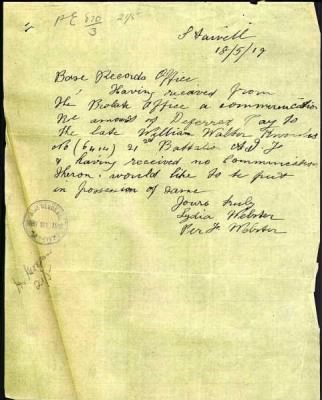 P E 870 21/5
3
Stawell
18/5/19
Base Records Office
Having received from
the Probate Office a communication
re amount of Deferred Pay to
the late William Walter
No (6414) 21st Battalion A I F
& having received no Communication
thereon. would like to be put
in possession of same
Yours truly
Lydia Webster
Per F Webster
21/5